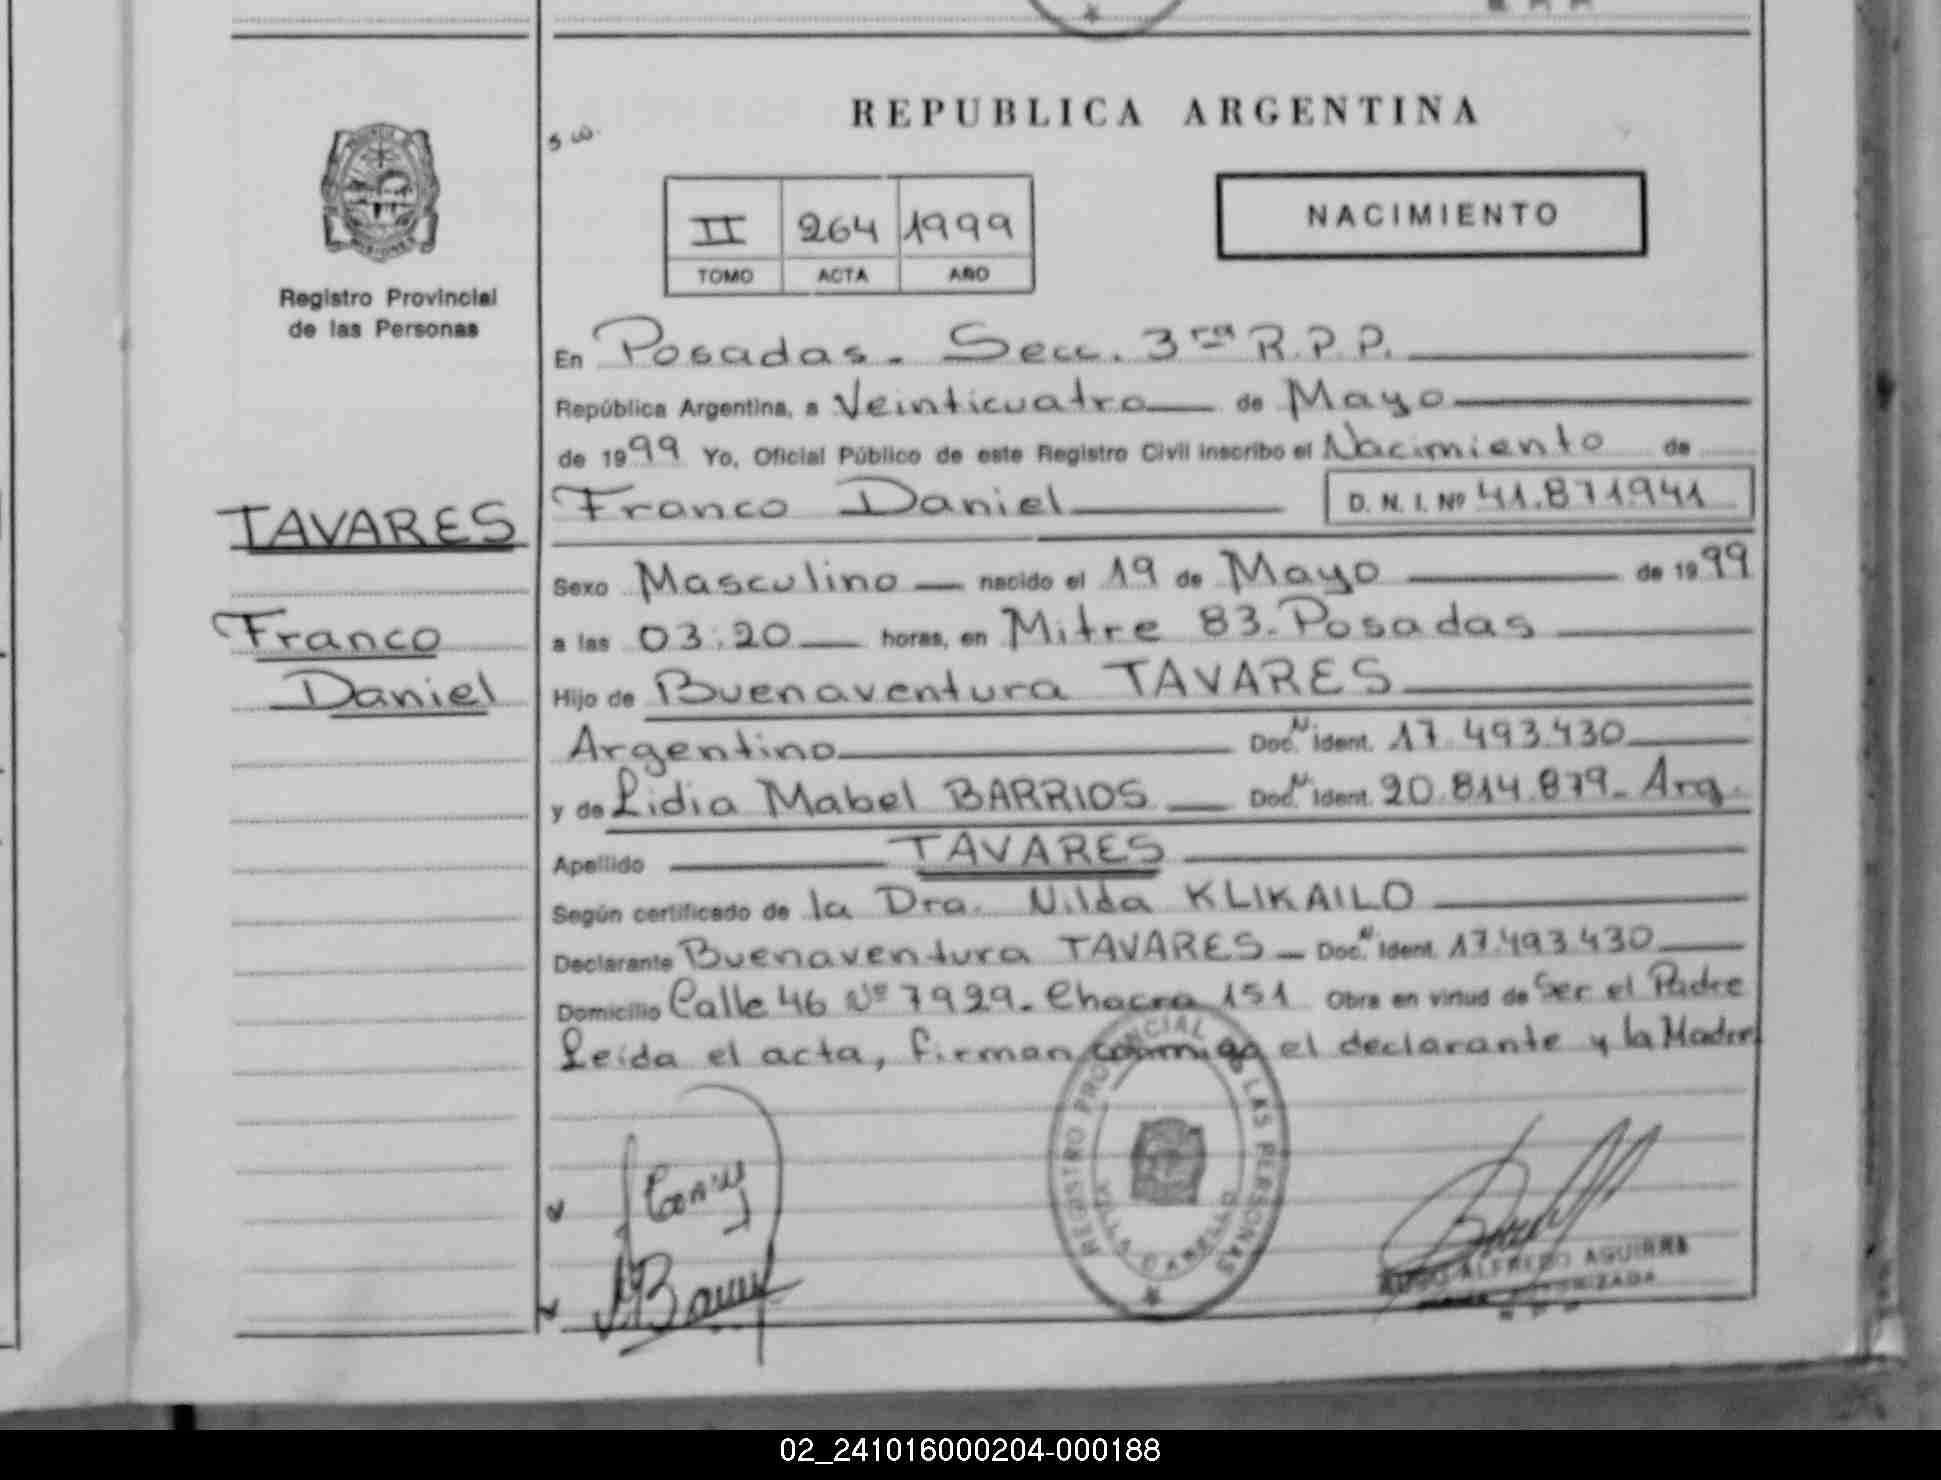 REPUBLICA ARGENTINA
Registro Provincial
de las Personas
II 264 1999
TOMO ACTA AÑO
NACIMIENTO
En Posadas. Secc. 3ra R.P.P.
República Argentina, a Veinticuatro de Mayo
de 1999 Yo, Oficial Público de este Registro Civil inscribo el Nacimiento de
TAVARES
Franco Daniel D. N. I. Nº 41.871941
Sexo Masculino nacido el 19 de Mayo de 1999
Franco
a las 03:20 horas, en Mitre 83. Posadas
Daniel
Hijo de Buenaventura TAVARES
Argentino Doc. N Ident. 17.493.430
y de Lidia Mabel BARRIOS Doc. N Ident. 20.814.879. Arg.
Apellido TAVARES
Según certificado de la Dra. Nilda KLIKAILO
Declarante Buenaventura TAVARES Doc. N Ident. 17.493.430
Domicilio Calle 46 Nº 7929. Chacra 151 Obra en virtud de Ser el Padre
Leida el acta, firman conmigo el declarante y la Madre
REGISTRO PROVINCIAL LAS PERSONAS
VILLA CABELLO
ALFREDO AGUIRRE
AUTORIZADA
02_241016000204-000188